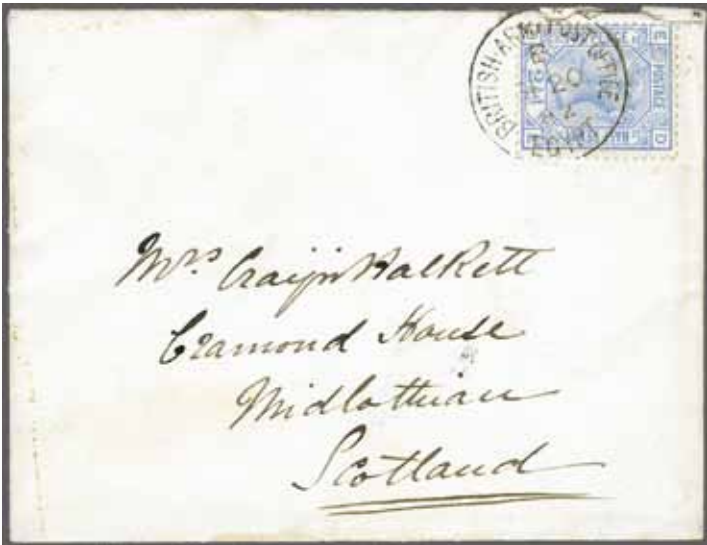 BRITISH ARMY POST OFFICE
20
EGYPT
POSTAGE
E
D
Mrs. Craigie Halkett
Cramond House
Midlothian
Scotland